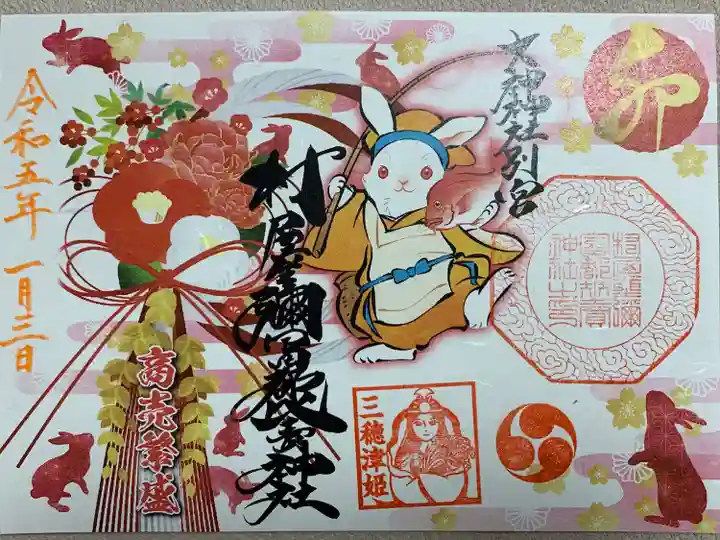 卯
大神神社別宮
村屋坐彌冨都比賣神社
村屋坐彌
冨都比賣
神社之印
三穂津姫
商売繁盛
令和五年 一月三日